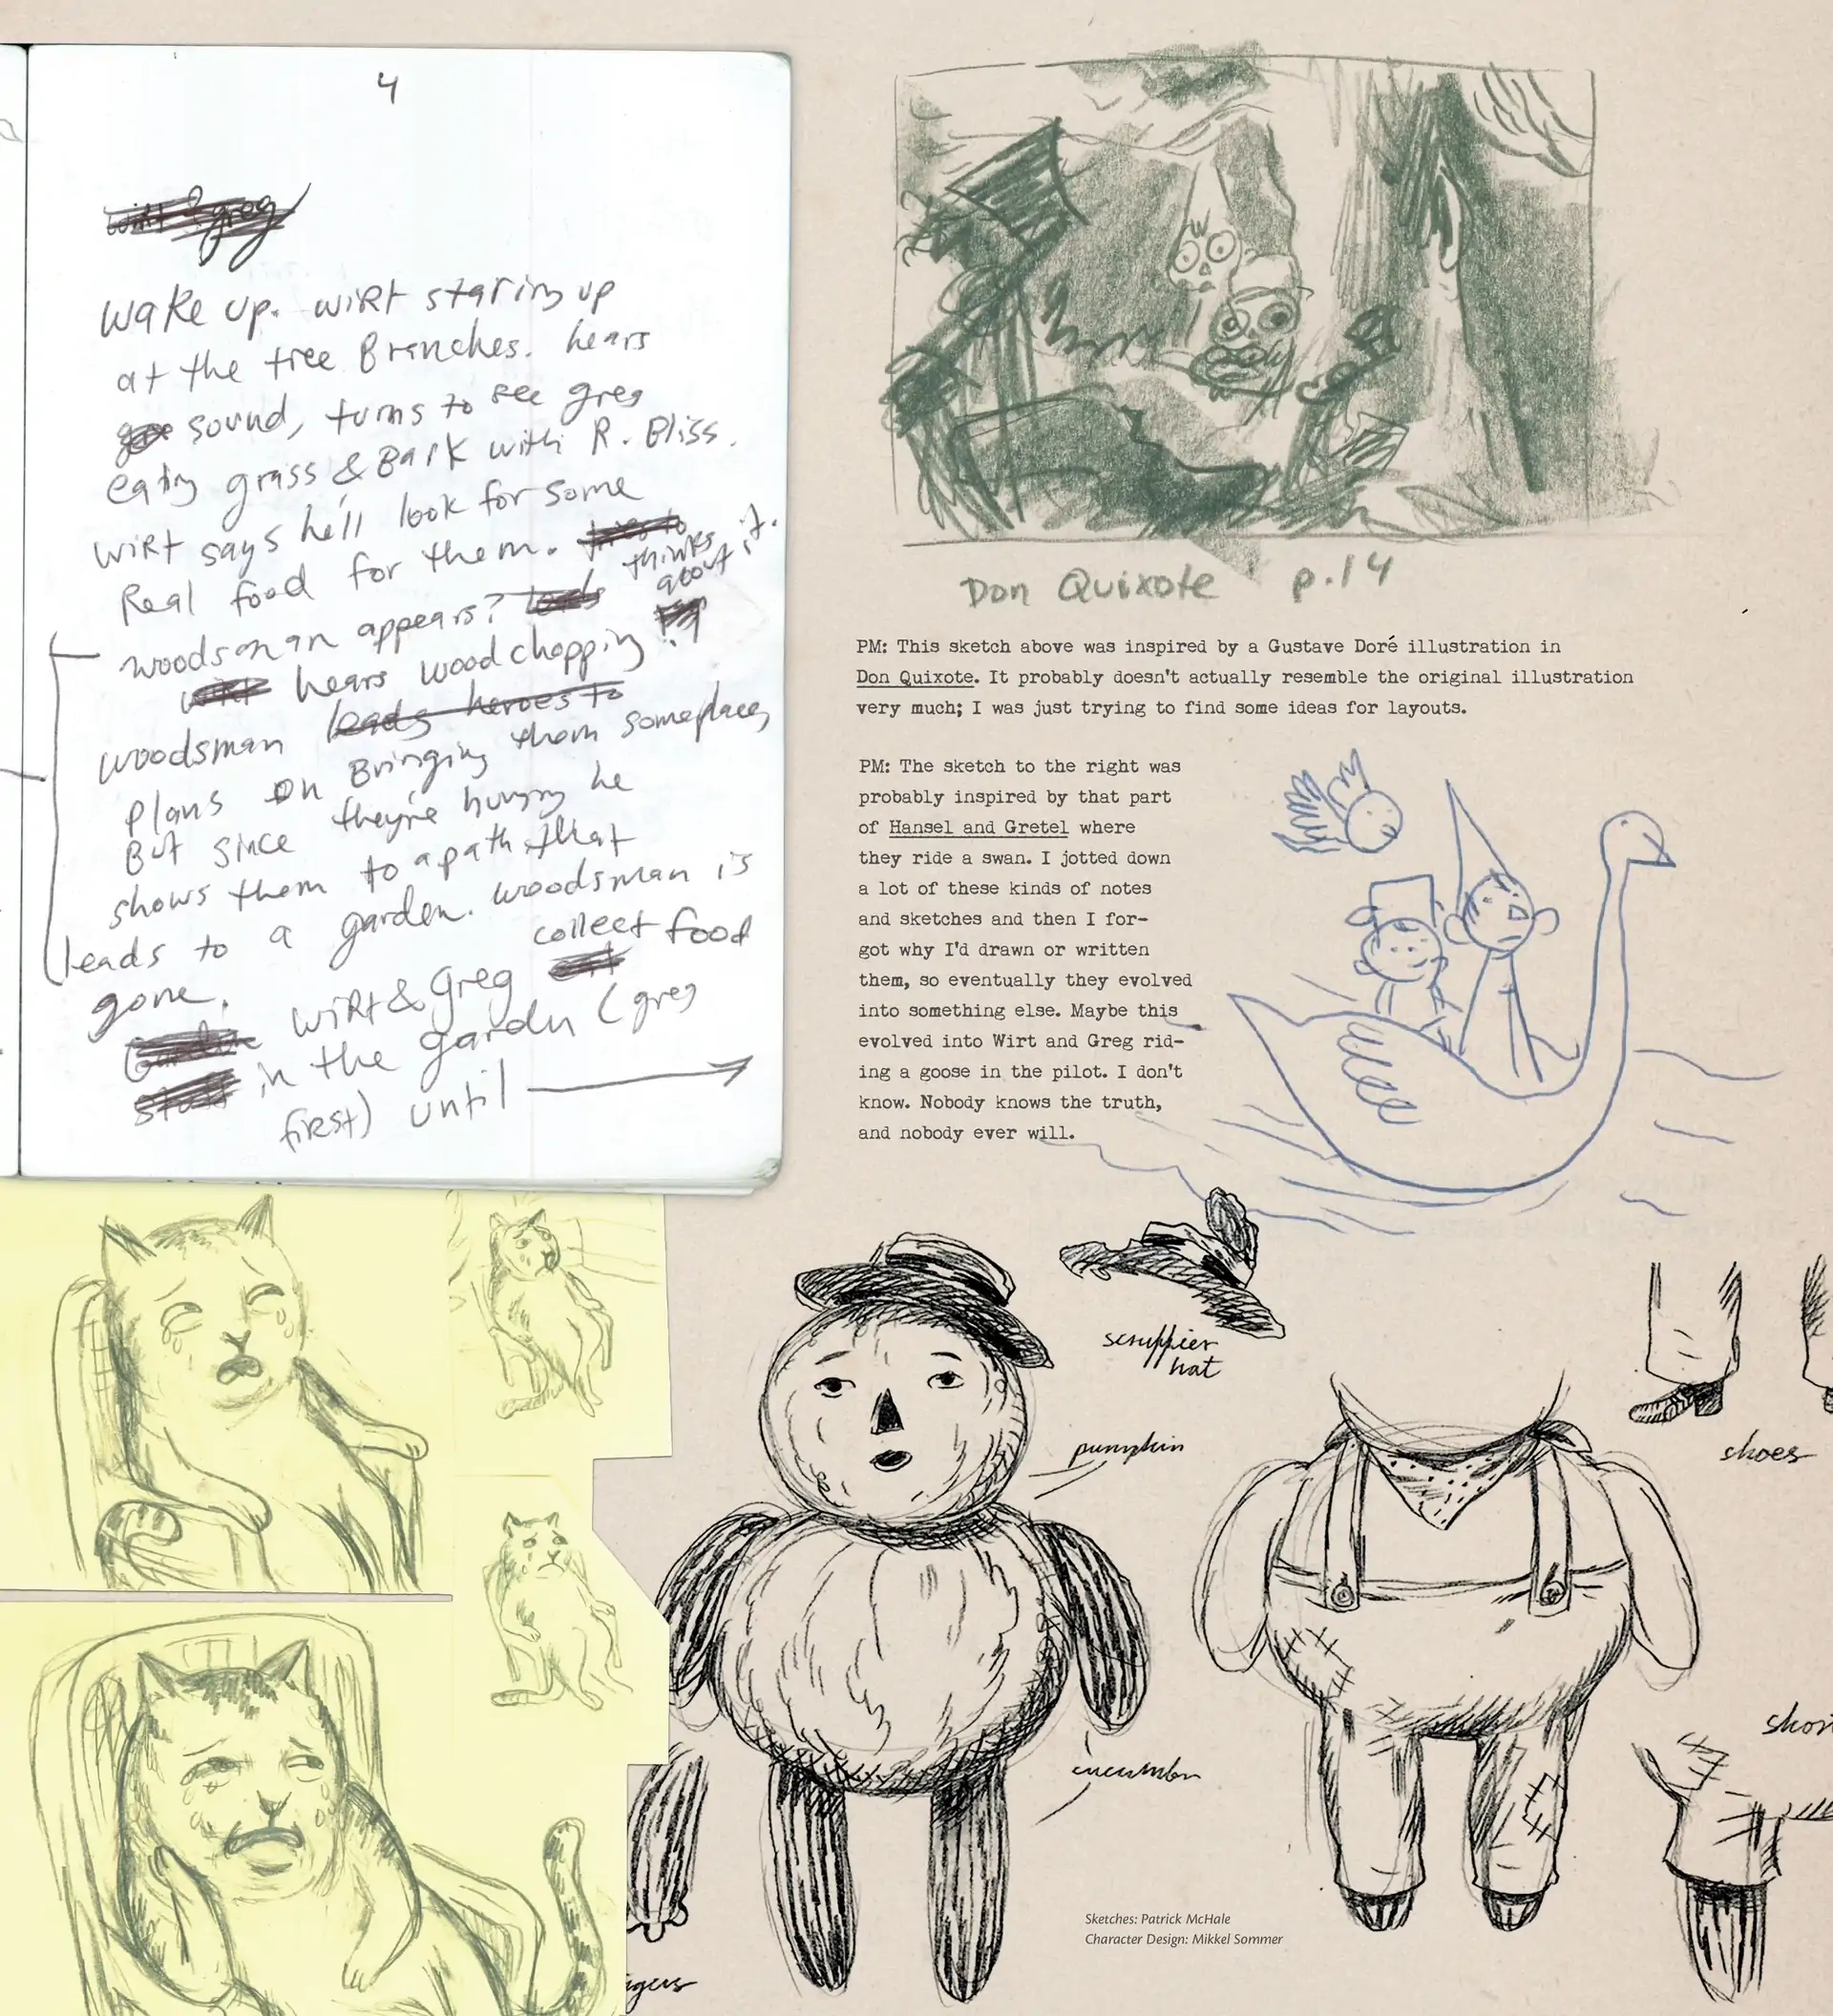 4
wirt & greg
wake up. wirt staring up
at the tree Branches. hears
sound, turns to see greg
eating grass & Bark with R. Bliss.
wirt says he'll look for some
Real food for them. tries to thinks
about it.
woodsman appears?
wirt hears wood chopping
woodsman leads heroes to
plans on Bringing them someplace,
But since they're hungry he
shows them to a path that
leads to a garden. woodsman is
gone.
wirt & Greg collect food
in the garden (greg
first) until
Don Quixote p.14
PM: This sketch above was inspired by a Gustave Doré illustration in
Don Quixote. It probably doesn't actually resemble the original illustration
very much; I was just trying to find some ideas for layouts.
PM: The sketch to the right was
probably inspired by that part
of Hansel and Gretel where
they ride a swan. I jotted down
a lot of these kinds of notes
and sketches and then I for-
got why I'd drawn or written
them, so eventually they evolved
into something else. Maybe this
evolved into Wirt and Greg rid-
ing a goose in the pilot. I don't
know. Nobody knows the truth,
and nobody ever will.
scruffier
hat
pumpkin
shoes
cucumber
Sketches: Patrick McHale
Character Design: Mikkel Sommer